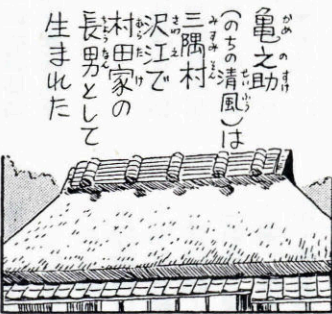 亀之助
(のちの清風)は
三隅村
沢江で
村田家の
長男として
生まれた